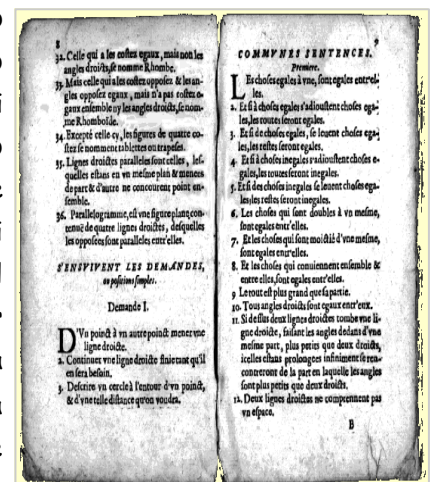 8
32. Celle qui a les costez egaux, mais non les
angles droicts, se nomme Rhombe.
33. Mais celle qui a les costez opposez & les an-
gles opposez egaux, mais n'a pas costez e-
gaux ensemble ny les angles droicts, se nom-
me Rhomboïde.
34. Excepté celle cy, les figures de quatre co-
stez se nomment tablettes ou trapeses.
35. Lignes droictes paralleles sont celles, les-
quelles estans en vn mesme plan & menees
de part & d'autre ne concourent point en-
semble.
36. Parallelogramme, est vne figure plane, con-
tenuë de quatre lignes droictes, desquelles
les opposees sont paralleles entr'elles.
S'ENSVIVENT LES DEMANDES,
ou positions simples.
Demande I.
D'Vn poinct à vn autre poinct mener vne
ligne droicte.
2. Continuer vne ligne droicte finie tant qu'il
en sera besoin.
3. Descrire vn cercle à l'entour d'vn poinct,
& d'vne telle distance qu'on voudra.
9
COMMVNES SENTENCES.
Premiere.
LEs choses egales à vne, sont egales entr'el-
les.
2. Et si à choses egales s'adioustent choses ega-
les, les toutes seront egales.
3. Et si de choses egales, se leuent choses ega-
les, les restes seront egales.
4. Et si à choses inegales s'adioustent choses e-
gales, les toutes seront inegales.
5. Et si des choses inegales se leuent choses ega-
les, les restes seront inegales.
6. Les choses qui sont doubles à vn mesme,
sont egales entr'elles.
7. Et les choses qui sont moictié d'vne mesme,
sont egales entr'elles.
8. Et les choses qui conuiennent ensemble &
entre elles, sont egales entr'elles.
9 Le tout est plus grand que sa partie.
10. Tous angles droicts sont egaux entr'eux.
11. Si dessus deux lignes droictes tombe vne li-
gne droicte, faisant les angles dedans d'vne
mesme part, plus petits que deux droicts,
icelles estans prolongees infiniment se ren-
contreront de la part en laquelle les angles
sont plus petits que deux droicts.
12. Deux lignes droictes ne comprennent pas
vn espace.
B